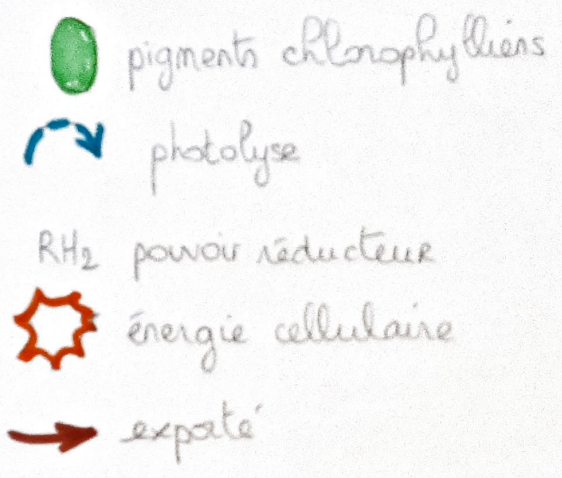 pigments chlorophylliens
photolyse
RH₂ pouvoir réducteur
énergie cellulaire
exporté